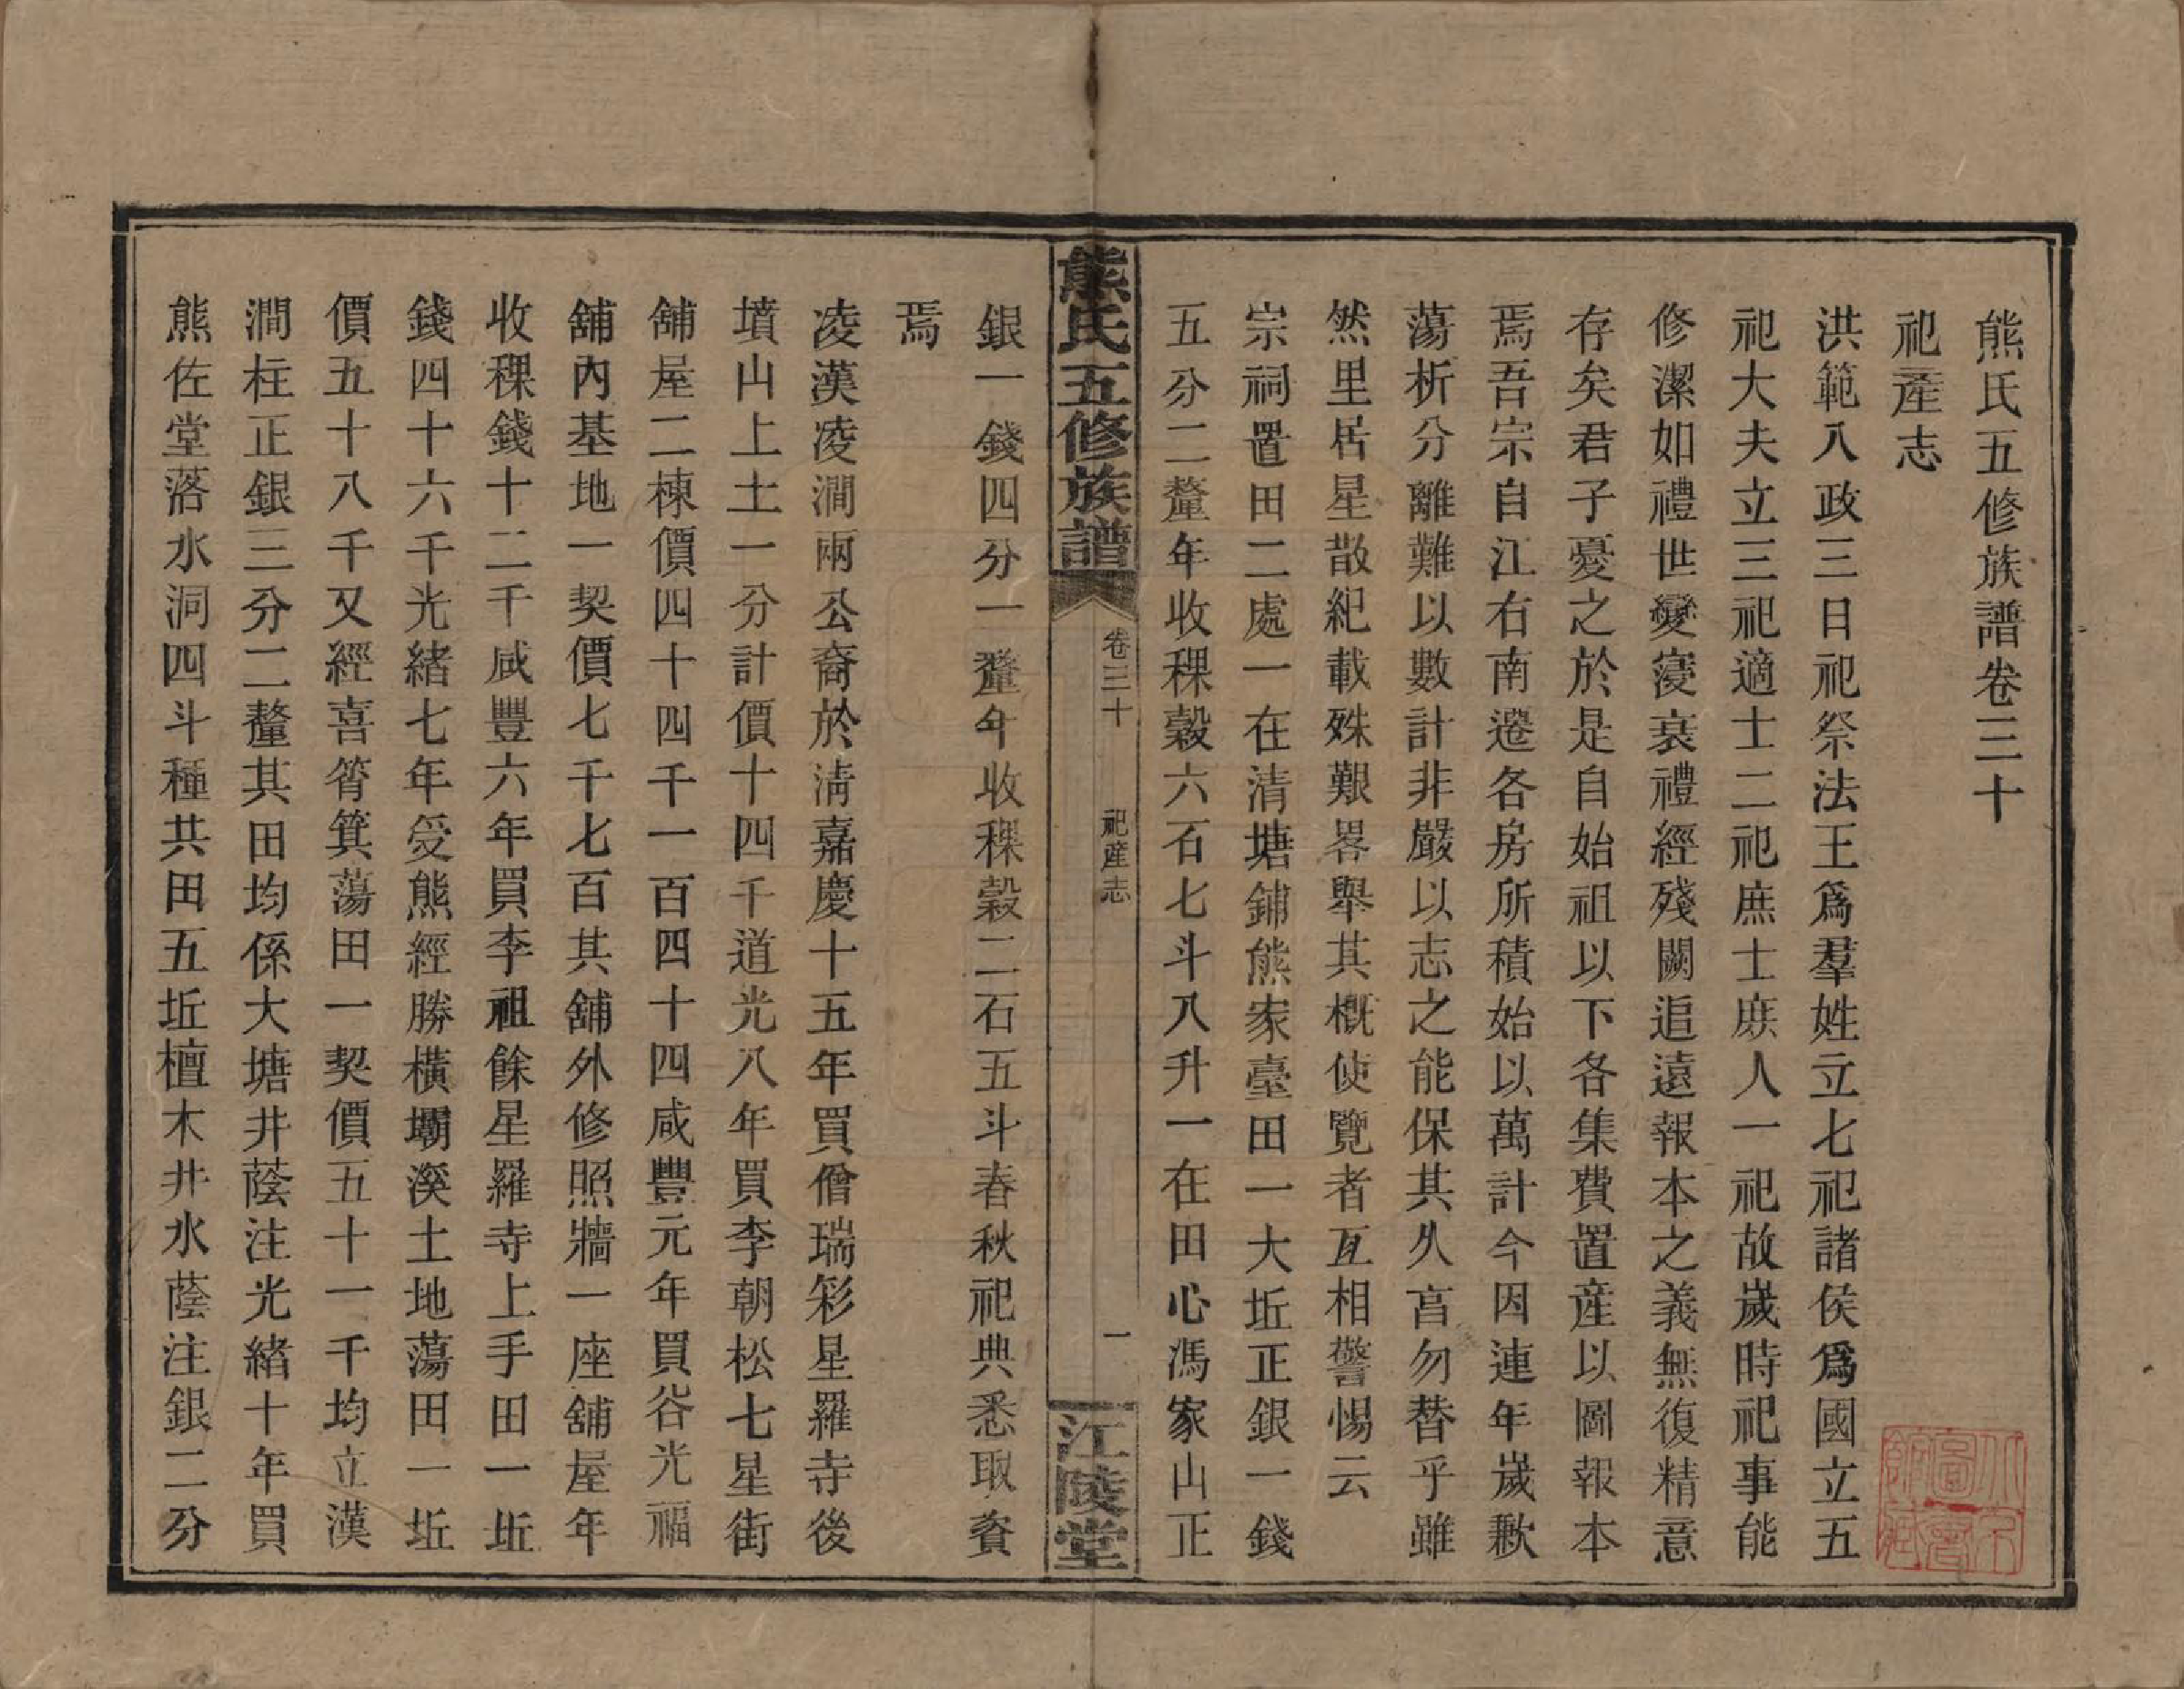 熊氏五修族譜卷三十
祀產志
洪範八政三曰祀祭法王爲羣姓立七祀諸侯爲國立五
祀大夫立三祀適士二祀庶士庶人一祀故歲時祀事能
修潔如禮世變寖衰禮經殘闕追遠報本之義無復精意
存矣君子憂之於是自始祖以下各集費置産以圖報本
焉吾宗自江右南遷各房所積始以萬計今因連年歲歉
蕩析分離難以數計非嚴以志之能保其久而勿替乎雖
然里居星散紀載殊艱畧舉其概使覽者互相警惕云
宗祠置田二處一在清塘鋪熊家臺田一大坵正銀一錢
五分二釐年收稞穀六石七斗八升一在田心馮家山正
熊氏五修族譜
卷三十
祀産志
一
江陵堂
銀一錢四分一釐年收稞穀二石五斗春秋祀典悉取資
焉
凌漢凌澗兩公裔於清嘉慶十五年買僧瑞彩星羅寺後
墳山上土一分計價十四千道光八年買李朝松七星街
舖屋二棟價四十四千一百四十四咸豐元年買谷光福
舖內基地一契價七千七百其舖外修照牆一座舖屋年
收稞錢十二千咸豐六年買李祖餘星羅寺上手田一坵
錢四十六千光緒七年受熊經勝橫壩溪土地蕩田一坵
價五十八千又經喜筲箕蕩田一契價五十一千均立漢
澗柱正銀三分二釐其田均係大塘井蔭注光緒十年買
熊佐堂落水洞四斗種共田五坵檀木井水蔭注銀二分